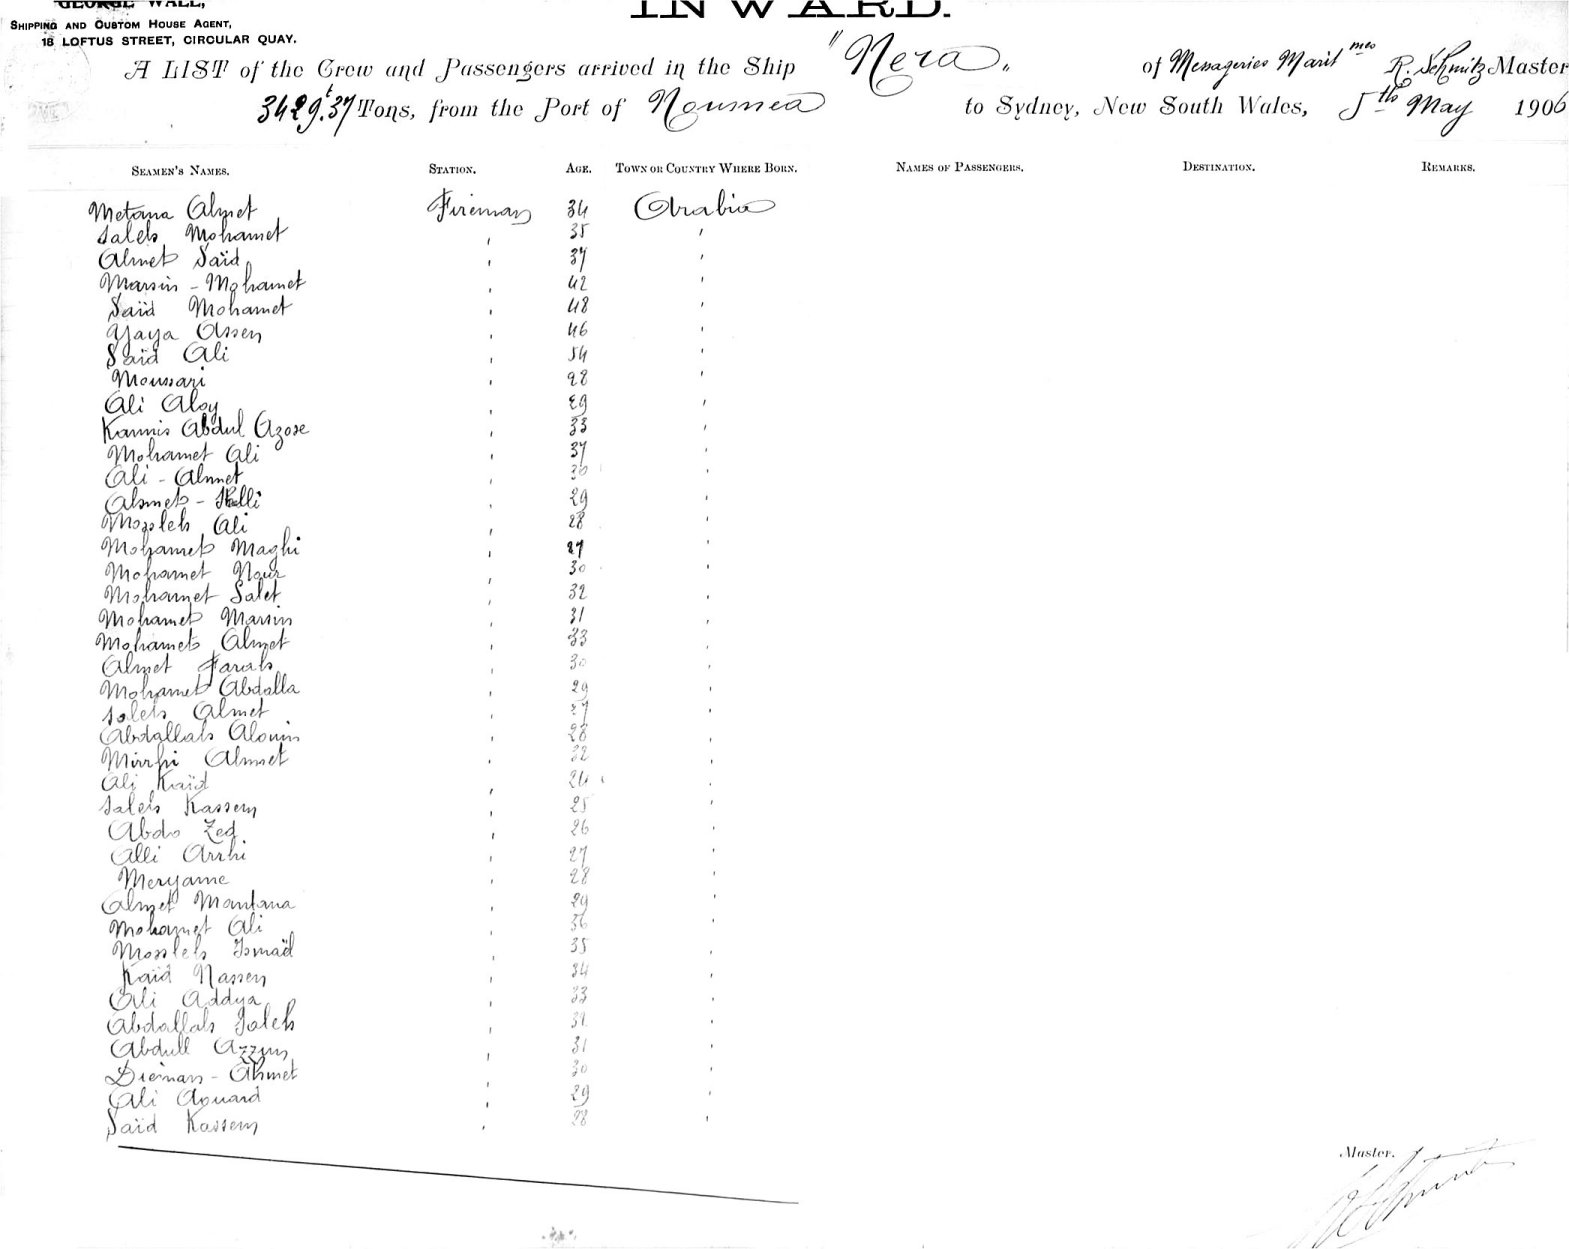 GEORGE WALL,
SHIPPING AND CUSTOM HOUSE AGENT,
18 LOFTUS STREET, CIRCULAR QUAY.
INWARD.
A LIST of the Crew and Passengers arrived in the Ship "Nera" of Messageries Marit mes R. Schmitz Master
3429.37 Tons, from the Port of Noumea to Sydney, New South Wales, 5th May 1906
SEAMEN'S NAMES. STATION. AGE. TOWN OR COUNTRY WHERE BORN. NAMES OF PASSENGERS. DESTINATION. REMARKS.
Metana Ahmet Fireman 34 Arabia
Saleh Mohamet ' 35 '
Ahmet Saïd ' 37 '
Marsin - Mohamet ' 42 '
Saïd Mohamet ' 48 '
Yaya Assen ' 46 '
Saïd Ali ' 54 '
Moussari ' 28 '
Ali Aloy ' 29 '
Kannis Abdul Azose ' 33 '
Mohamet Ali ' 37 '
Ali - Ahmet ' 30 '
Ahmet - ' 29 '
Mossleh Ali ' 28 '
Mohamet Maghi ' 27 '
Mohamet Nour ' 30 '
Mohamet Salet ' 32 '
Mohamet Marsin ' 31 '
Mohamet Ahmet ' 33 '
Ahmet Farah ' 30 '
Mohamet Abdalla ' 29 '
Saleh Ahmet ' 27 '
Abdallah Alouin ' 28 '
Mirrhi Ahmet ' 32 '
Ali Kaïd ' 24 '
Saleh Kassem ' 25 '
Abdo Zed ' 26 '
Alli Arrhi ' 27 '
Meryame ' 28 '
Ahmet Mantana ' 29 '
Mohamet Ali ' 36 '
Mossleh Ismaël ' 35 '
Kaïd Nassen ' 34 '
Ali Addya ' 33 '
Abdallah Saleh ' 32 '
Abdull Azzun ' 31 '
Dieman - Ahmet ' 30 '
Ali Aouard ' 29 '
Saïd Kassem ' 28 '
Master.
R Schmitz